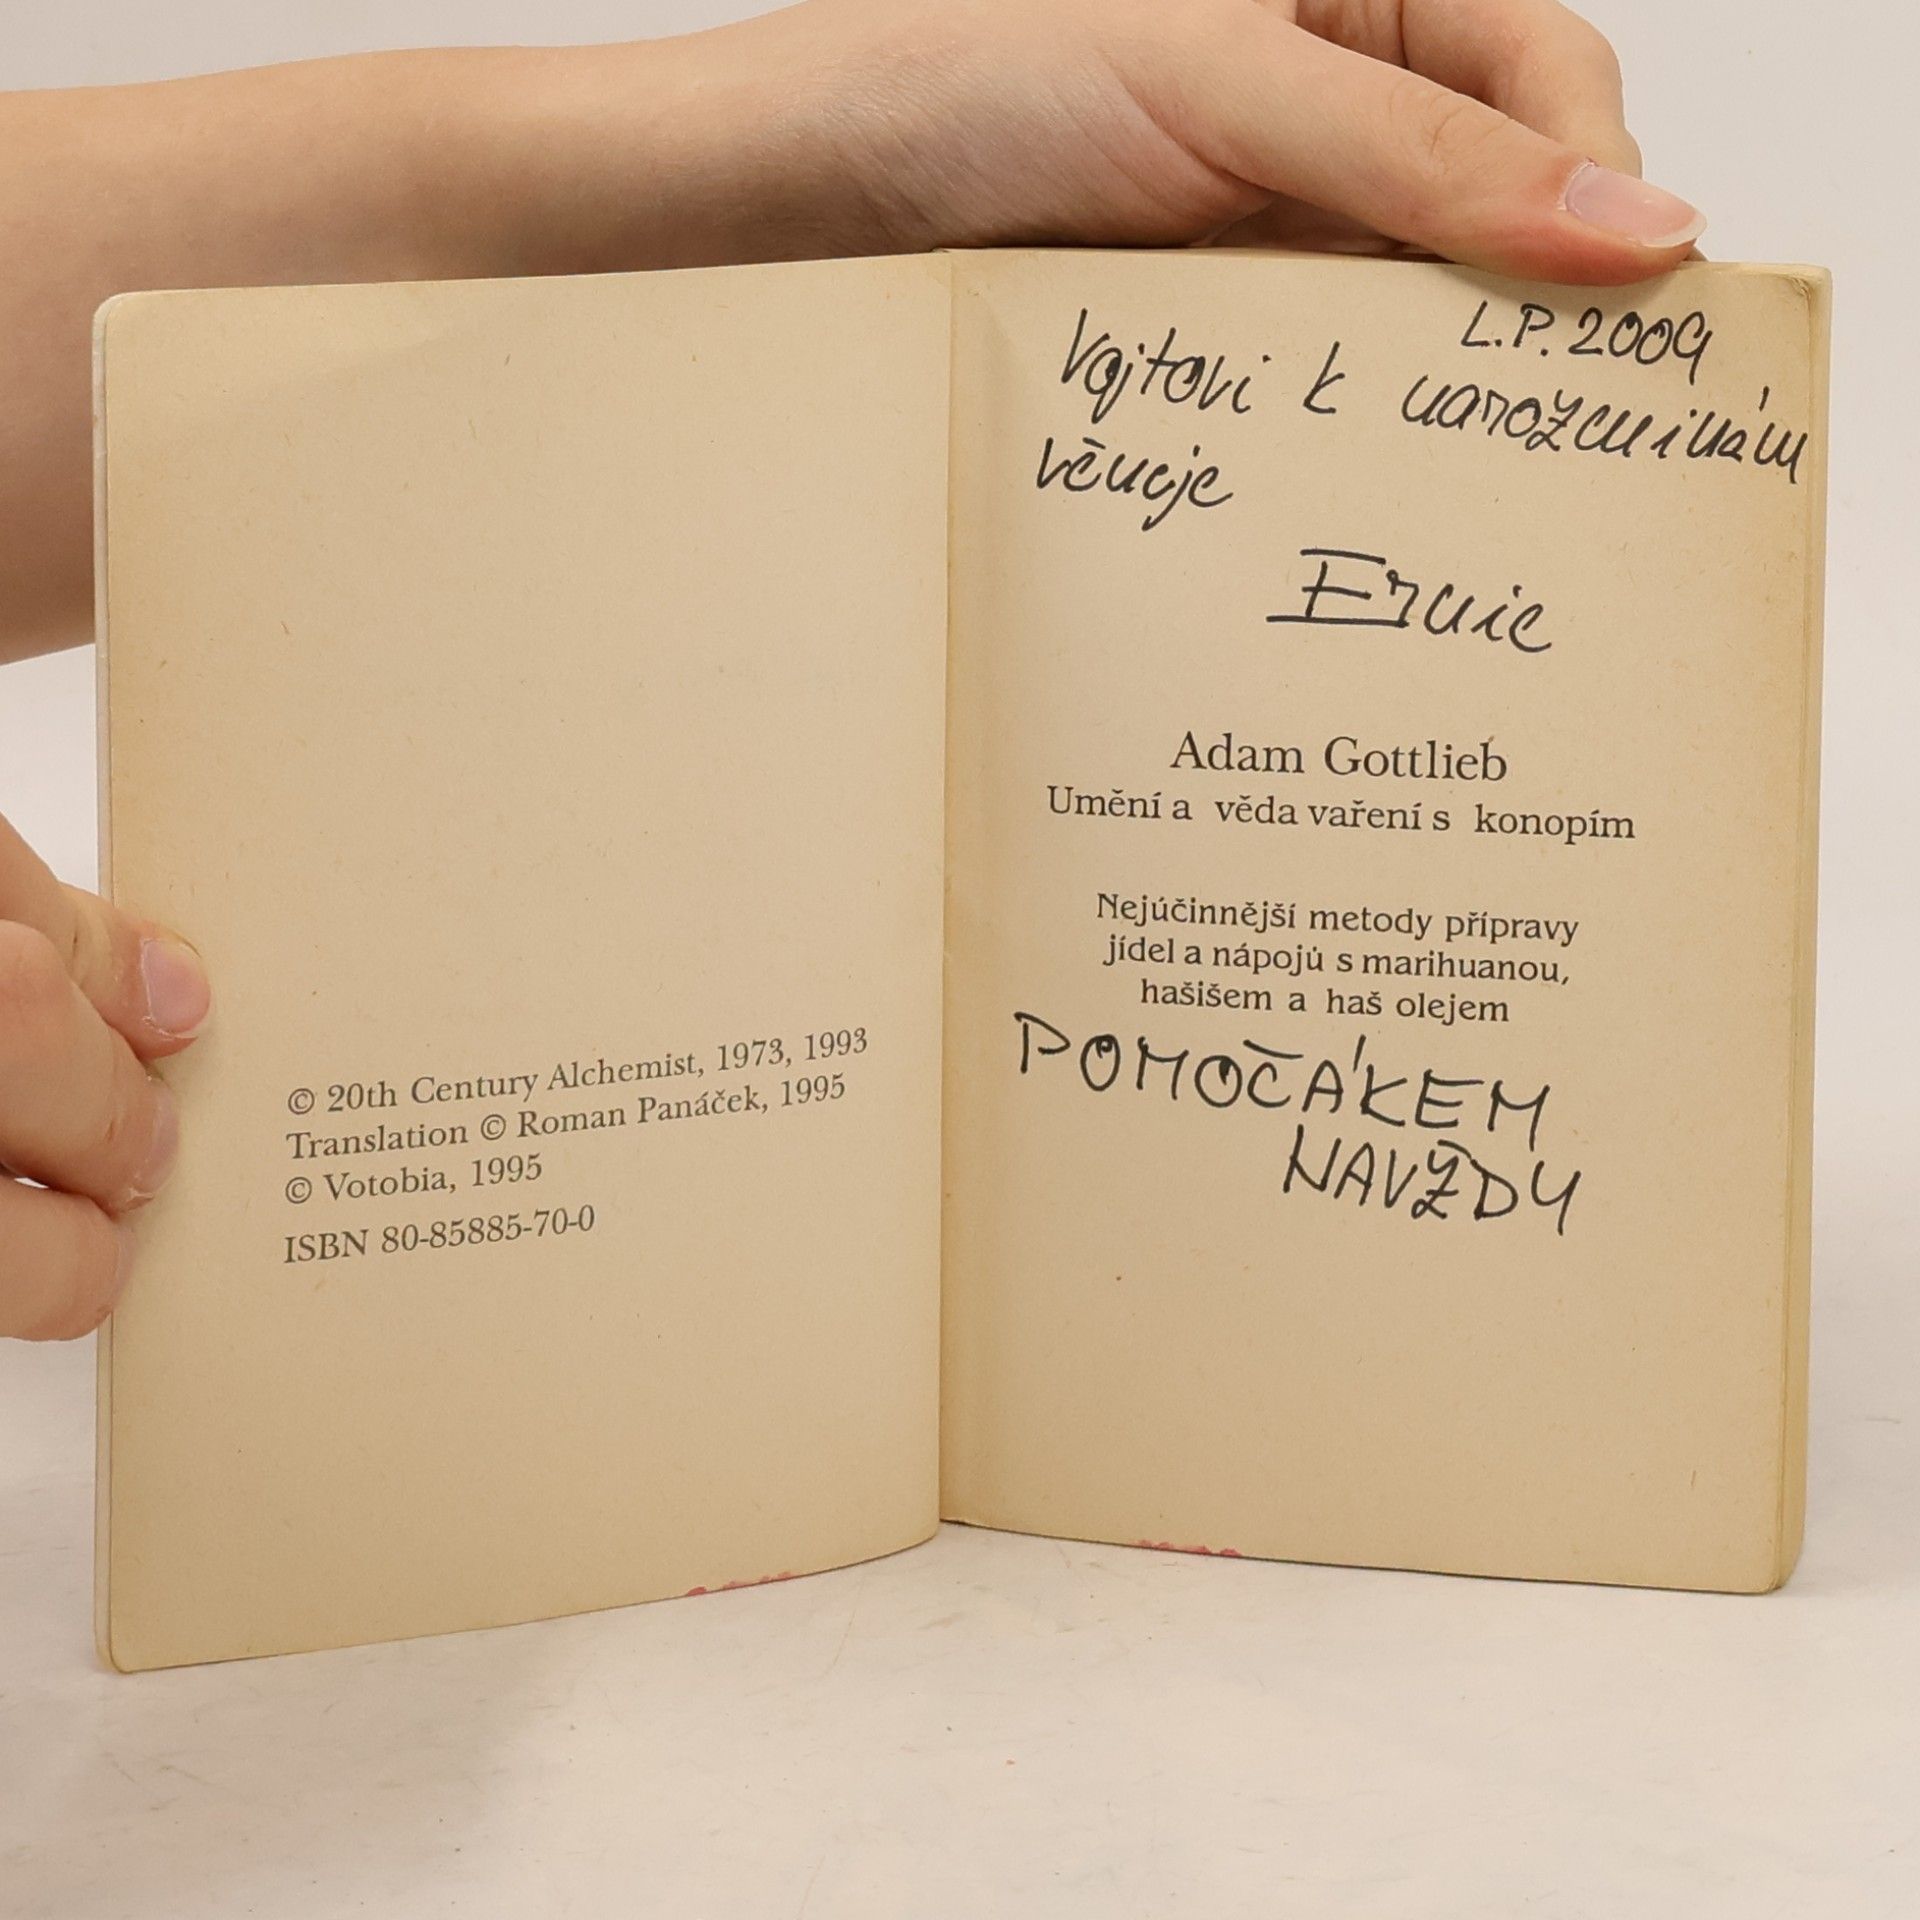 © 20th Century Alchemist, 1973, 1993
Translation © Roman Panáček, 1995
© Votobia, 1995
ISBN 80-85885-70-0
L.P. 2009
Vojtovi k narozeninám
věnuje
Ernie
Adam Gottlieb
Umění a věda vaření s konopím
Nejúčinnější metody přípravy
jídel a nápojů s marihuanou,
hašišem a haš olejem
POMOČÁKEM
NAVŽDY